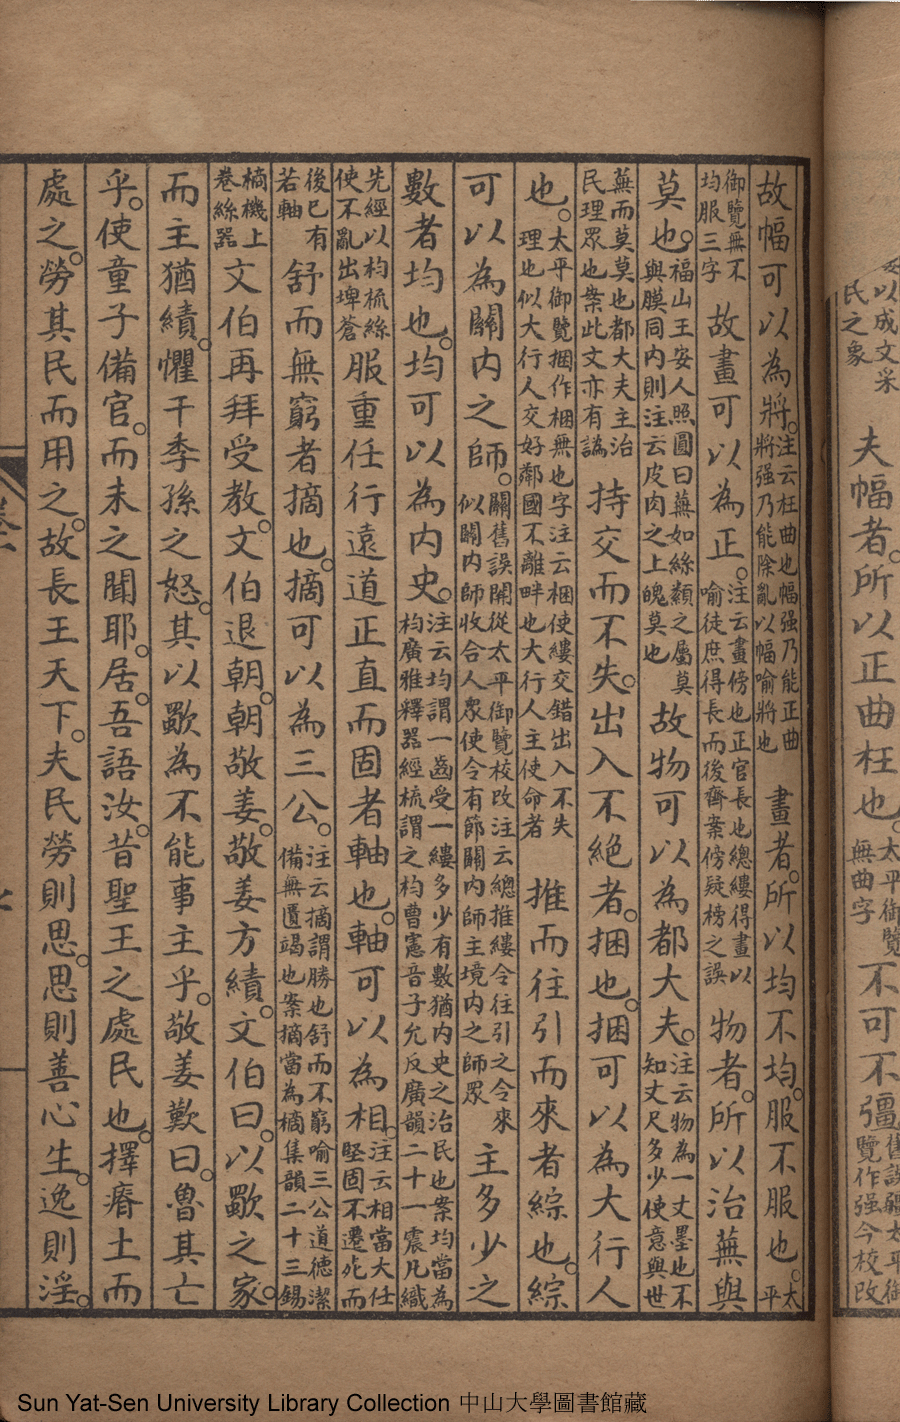 以成文采民之象夫幅者。所以正曲枉也。太平御覽無曲字不可不彊舊誤疆太平御覽作强今校改
故幅可以為將。注云枉曲也幅强乃能正曲將强乃能除亂以幅喻將也畫者。所以均不均。服不服也。太平
御覽無不均服三字故畫可以為正。注云畫傍也正官長也總縷得畫以喻徒庶得長而後齊案傍疑榜之誤物者。所以治蕪與
莫也。福山王安人照圓曰蕪如絲纇之屬莫與膜同内則注云皮肉之上魄莫也故物可以為都大夫。注云物為一丈墨也不知丈尺多少使意與世
蕪而莫莫也都大夫主治民理眾也案此文亦有譌持交而不失。出入不絕者。捆也。捆可以為大行人
也。太平御覽捆作梱無也字注云梱使縷交錯出入不失理也似大行人交好鄰國不離畔也大行人主使命者推而往引而來者綜也。綜
可以為關内之師。關舊誤開從太平御覽校改注云總推縷令往引之令來似關内師收合人眾使令有節關内師主境内之師眾主多少之
數者均也。均可以為内史。注云均謂一齒受一縷多少有數猶内史之治民也案均當為枃廣雅釋器經梳謂之枃曹憲音子允反廣韻二十一震凡織
先經以枃梳絲使不亂出埤蒼服重任行遠道正直而固者軸也。軸可以為相。注云相當大任堅固不遷死而
後已有若軸舒而無窮者摘也。摘可以為三公。注云摘謂勝也舒而不窮喻三公道德潔備無匱竭也案摘當為樀集韻二十三錫
樀機上卷絲器文伯再拜受教。文伯退朝。朝敬姜。敬姜方績。文伯曰。以歜之家。
而主猶績。懼干季孫之怒。其以歜為不能事主乎。敬姜歎曰。魯其亡
乎。使童子備官。而未之聞耶。居。吾語汝。昔聖王之處民也。擇瘠土而
處之。勞其民而用之。故長王天下。夫民勞則思。思則善心生。逸則淫。
Sun Yat-Sen University Library Collection 中山大學圖書館藏